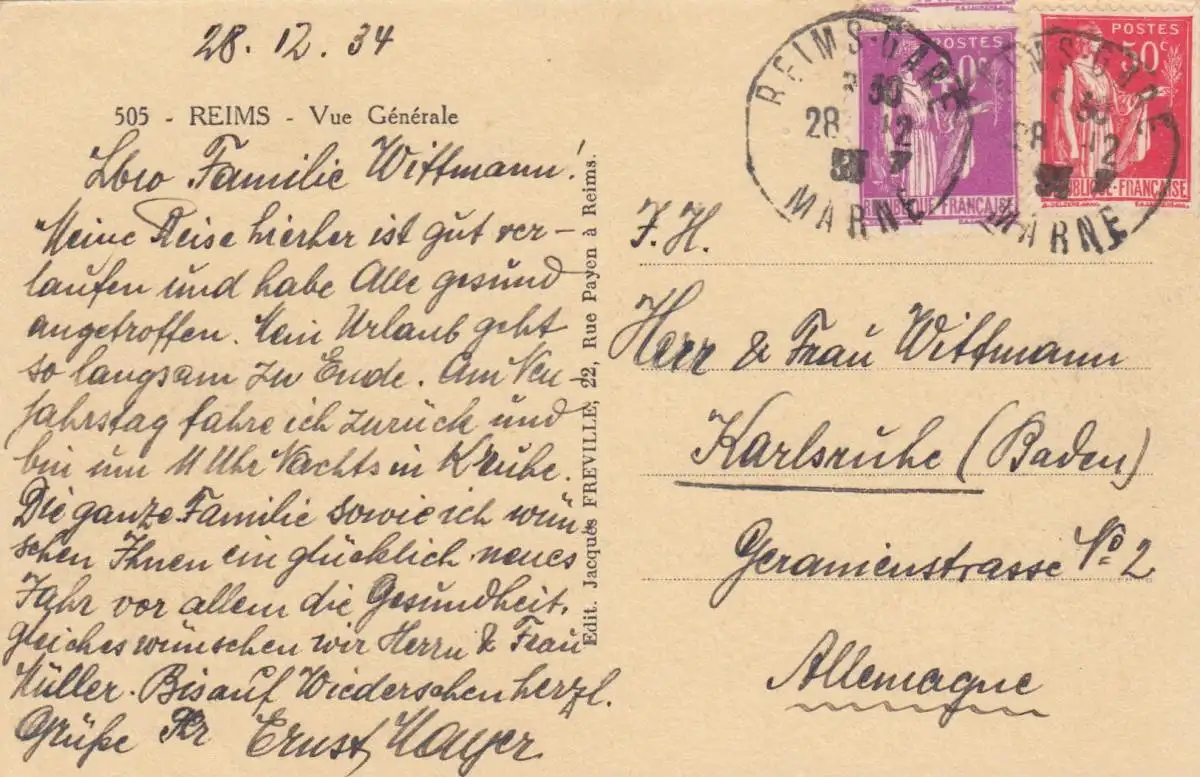 28. 12. 34
505 - REIMS - Vue Générale
Familie Wittmann!
Meine Reise hierher ist gut ver-
laufen und habe Alle gesund
angetroffen. Mein Urlaub geht
so langsam zu Ende. Am Neu-
jahrstag fahre ich zurück und
bin um 11 Uhr Nachts in K'ruhe.
Die ganze Familie sowie ich wün-
schen Ihnen ein glücklich neues
Jahr vor allem die Gesundheit.
gleiches wünschen wir Herrn & Frau
Müller. Bis auf Wiedersehen herzl.
Grüße Ihr Ernst Mayer
Edit. Jacques FREVILLE, 22, Rue Payen à Reims.
REIMS-GARE
28 12
MARNE
POSTES
40c
RÉPUBLIQUE FRANÇAISE
REIMS-GARE
30
28 12
MARNE
POSTES
50c
RÉPUBLIQUE-FRANÇAISE
F. H.
Herr & Frau Wittmann
Karlsruhe (Baden)
Geranienstrasse No 2
Allemagne